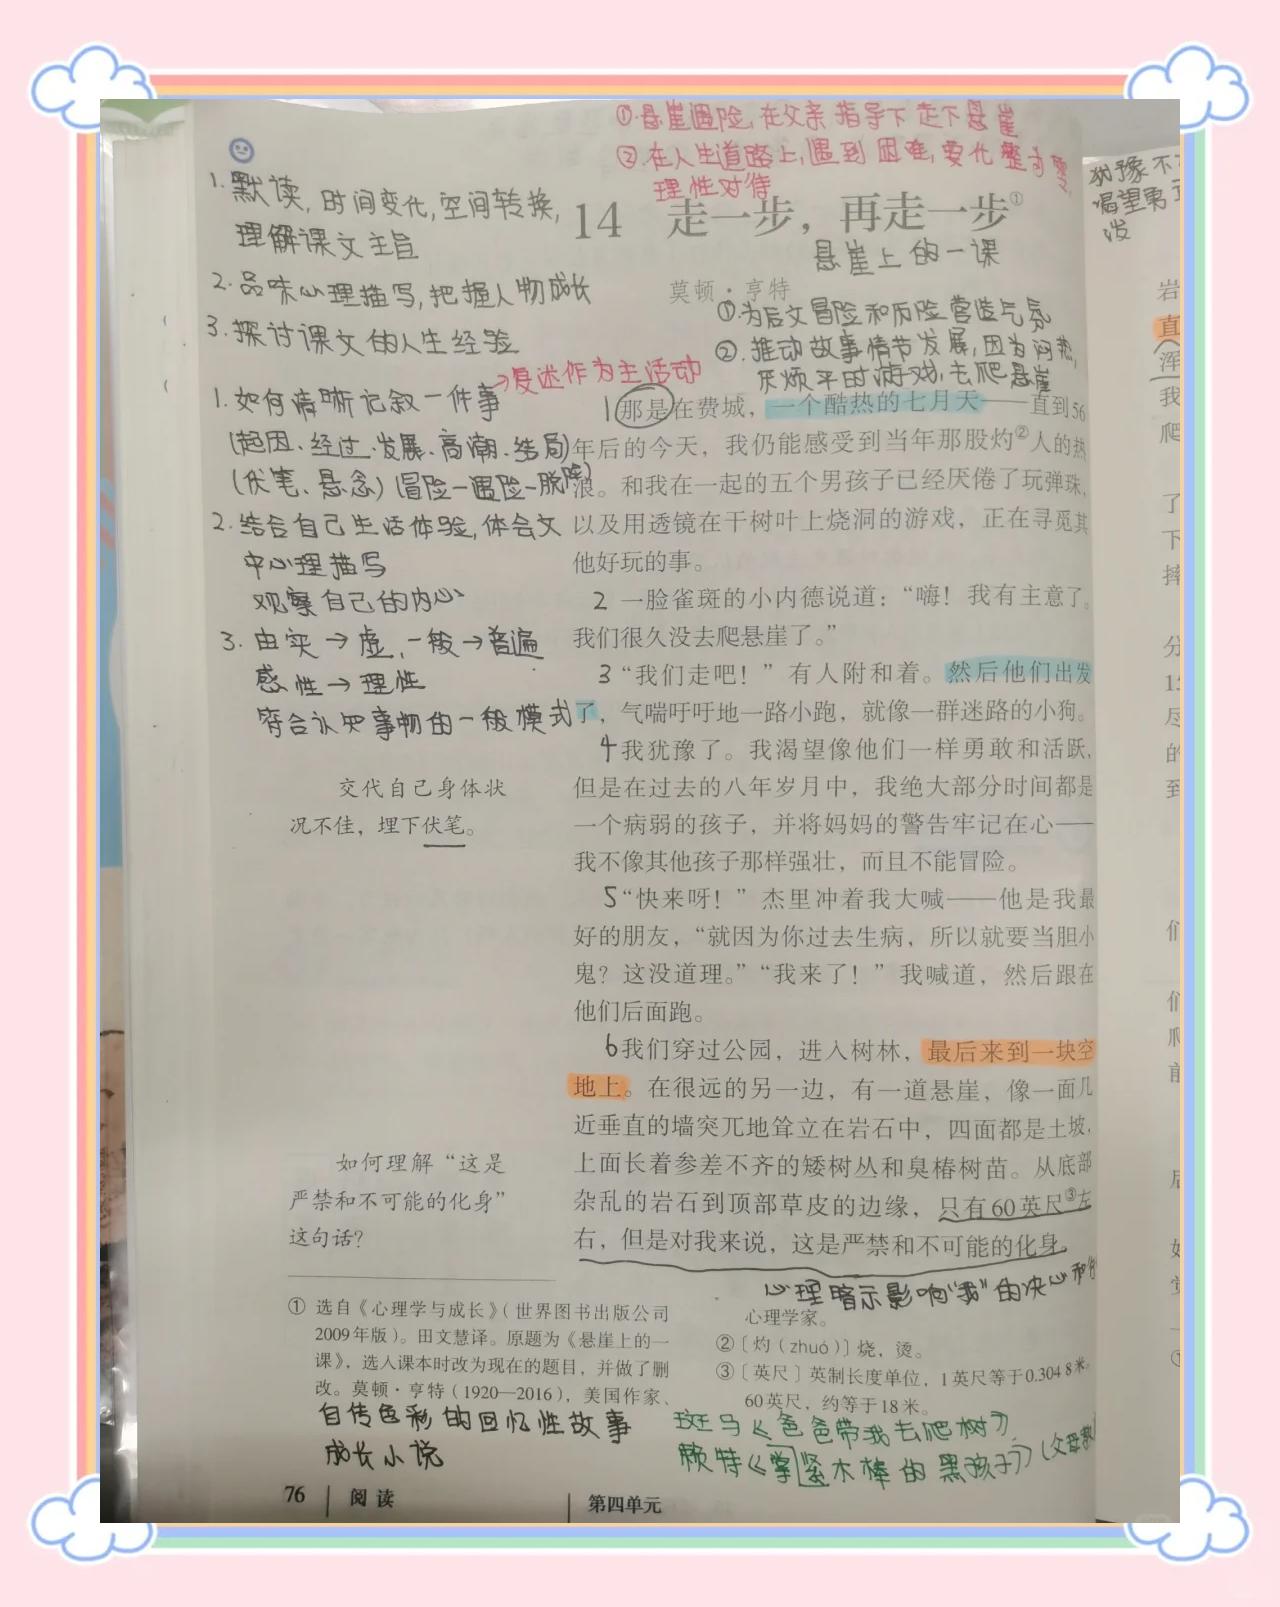 ①.悬崖遇险,在父亲指导下走下悬崖
②.在人生道路上,遇到困难,要化整为零,
理性对待
1.默读,时间变化,空间转换,
理解课文主旨
2.品味心理描写,把握人物成长
3.探讨课文的人生经验
14 走一步，再走一步①
悬崖上的一课
莫顿·亨特
①.为后文冒险和历险营造气氛
②.推动故事情节发展,因为闷热,
厌烦平时游戏,去爬悬崖
→复述作为主活动
1.如何清晰记叙一件事
(起因、经过、发展、高潮、结局)
(伏笔、悬念)(冒险—遇险—脱险)
2.结合自己生活体验,体会文
中心理描写
观察自己的内心
3.由实→虚,一般→普遍
感性→理性
符合认知事物的一般模式
交代自己身体状
况不佳，埋下伏笔。
如何理解“这是
严禁和不可能的化身”
这句话？
1那是在费城，一个酷热的七月天——直到56
年后的今天，我仍能感受到当年那股灼②人的热
浪。和我在一起的五个男孩子已经厌倦了玩弹珠，
以及用透镜在干树叶上烧洞的游戏，正在寻觅其
他好玩的事。
2 一脸雀斑的小内德说道：“嗨！我有主意了。
我们很久没去爬悬崖了。”
3“我们走吧！”有人附和着。然后他们出发
了，气喘吁吁地一路小跑，就像一群迷路的小狗。
4我犹豫了。我渴望像他们一样勇敢和活跃，
但是在过去的八年岁月中，我绝大部分时间都是
一个病弱的孩子，并将妈妈的警告牢记在心——
我不像其他孩子那样强壮，而且不能冒险。
5“快来呀！”杰里冲着我大喊——他是我最
好的朋友，“就因为你过去生病，所以就要当胆小
鬼？这没道理。”“我来了！”我喊道，然后跟在
他们后面跑。
6我们穿过公园，进入树林，最后来到一块空
地上。在很远的另一边，有一道悬崖，像一面几
近垂直的墙突兀地耸立在岩石中，四面都是土坡，
上面长着参差不齐的矮树丛和臭椿树苗。从底部
杂乱的岩石到顶部草皮的边缘，只有60英尺③左
右，但是对我来说，这是严禁和不可能的化身。
心理暗示影响“我”的决心和
① 选自《心理学与成长》（世界图书出版公司
2009年版）。田文慧译。原题为《悬崖上的一
课》，选入课本时改为现在的题目，并做了删
改。莫顿·亨特（1920—2016），美国作家、
心理学家。
②〔灼（zhuó）〕烧，烫。
③〔英尺〕英制长度单位，1英尺等于0.304 8米。
60英尺，约等于18米。
自传色彩的回忆性故事
成长小说
斑马《爸爸带我去爬树》
赖特《掌紧木棒的黑孩子》(父母教
76 阅读
第四单元
犹豫不
渴望勇
泼
岩
直
浑
我
爬
了
下
摔
分
15
尽
的
到
们
们
爬
前
后